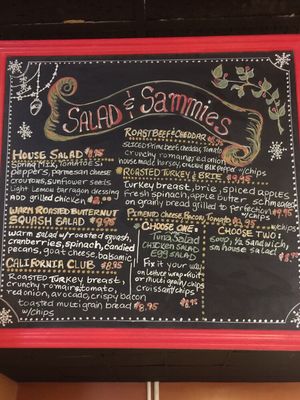 SALAD & Sammies
HOUSE SALAD $8.95
SPRING MIX, TOMATOES,
peppers, parmesan cheese
croutons, sunflower seeds
Light Lemon tarragon dressing
ADD grilled chicken
WARM ROASTED BUTTERNUT
SQUASH SALAD $9.95
warm salad w/ roasted squash,
cranberries, spinach, candied
pecans, goat cheese, balsamic
CALIFORNIA CLUB $8.95
ROASTED TURKEY breast,
crunchy romaine, tomato,
red onion, avocado, crispy bacon
toasted multigrain bread
w/chips
ROAST BEEF & CHEDDAR
SLICED Prime beef, cheddar, tomato
crunchy romaine, red onion,
house made horsey, cracked BLK pepper w/chips
ROASTED TURKEY & BRIE $8.95
Turkey breast, brie, spiced apples,
Fresh spinach, apple butter, schmeared
on grainy bread grilled to perfection! w/chips
PIMENTO cheese, Bacon, Tomato w/chips
CHOOSE ONE
Tuna Salad
CHICKEN SALAD
EGG SALAD
Fix it your way
on Lettuce wrap, fruit
or multigrain/chips
croissant/chips
$8.95
CHOOSE TWO!
SOUP, ½ sandwich,
sm house salad
$8.95